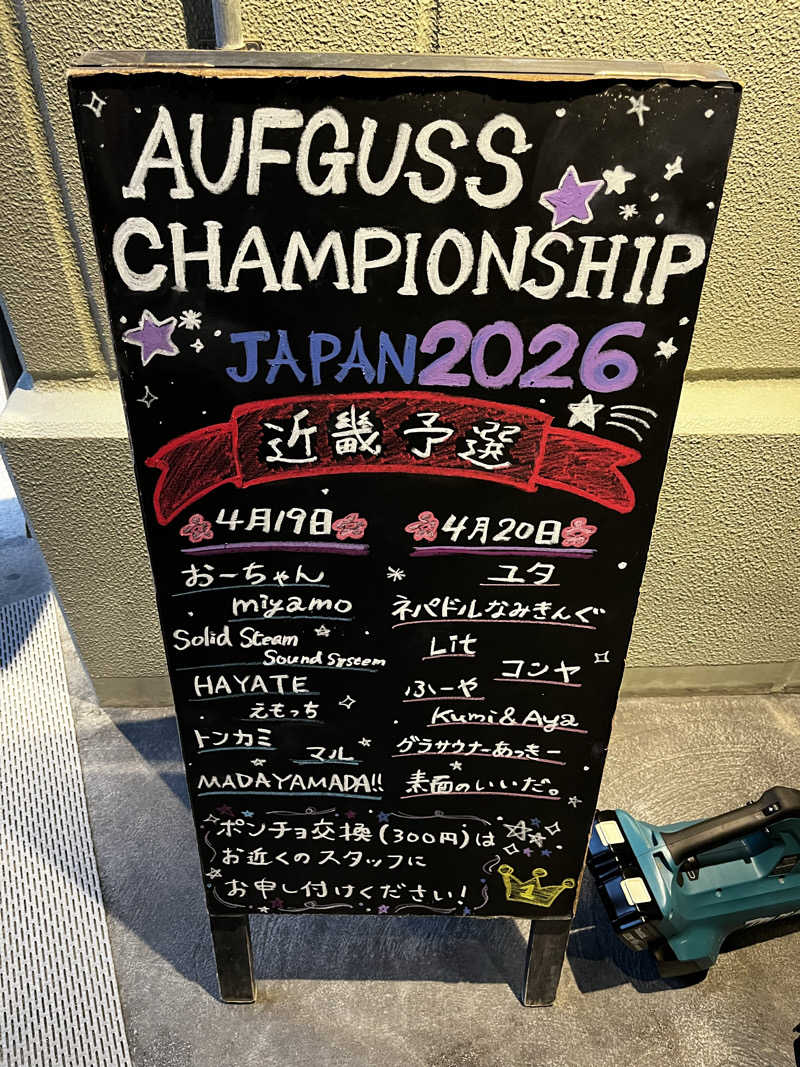 AUFGUSS
CHAMPIONSHIP
JAPAN 2026
近畿予選
4月19日
おーちゃん
miyamo
Solid Steam
Sound System
HAYATE
えもっち
トンカミ
マル
MADAYAMADA!!
4月20日
ユタ
ネパドルなみきんぐ
Lit
コンヤ
ふーや
Kumi&Aya
グラサウナーあっきー
素面のいいだ。
ポンチョ交換(300円)は
お近くのスタッフに
お申し付けください!
1